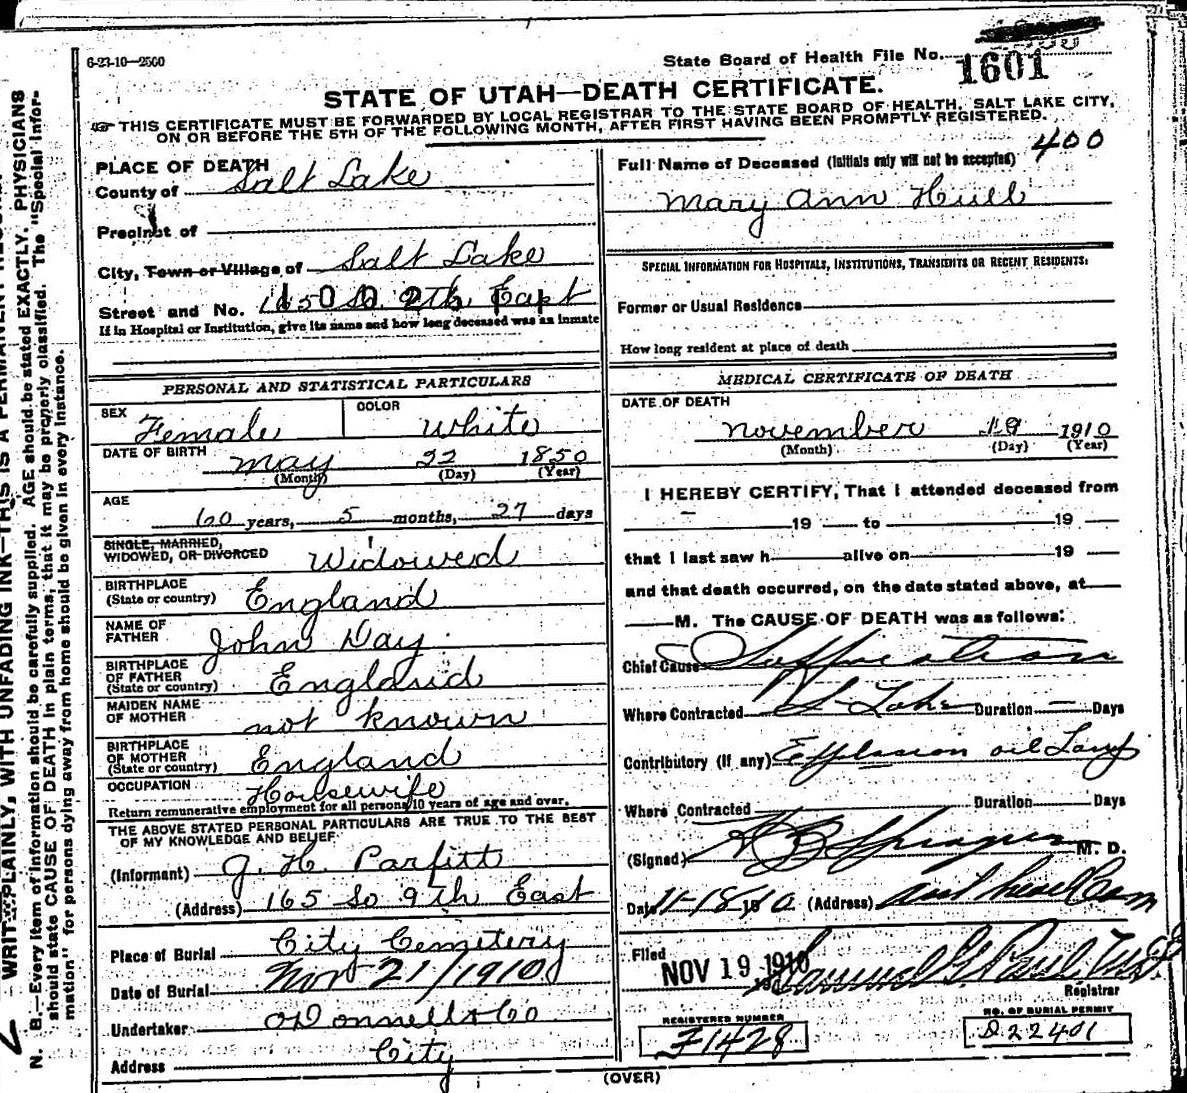 6-23-10—2500
State Board of Health File No.
1601
STATE OF UTAH—DEATH CERTIFICATE.
THIS CERTIFICATE MUST BE FORWARDED BY LOCAL REGISTRAR TO THE STATE BOARD OF HEALTH, SALT LAKE CITY,
ON OR BEFORE THE 5TH OF THE FOLLOWING MONTH, AFTER FIRST HAVING BEEN PROMPTLY REGISTERED.
PLACE OF DEATH
County of Salt Lake
Precinct of
City, Town or Village of Salt Lake
Street and No. 165 So. 9th East
If in Hospital or Institution, give its name and how long deceased was an inmate
Full Name of Deceased (Initials only will not be accepted) 400
Mary Ann Hull
SPECIAL INFORMATION FOR HOSPITALS, INSTITUTIONS, TRANSIENTS OR RECENT RESIDENTS:
Former or Usual Residence
How long resident at place of death
PERSONAL AND STATISTICAL PARTICULARS
SEX Female COLOR White
DATE OF BIRTH May 22 1850
(Month) (Day) (Year)
AGE
60 years, 5 months, 27 days
SINGLE, MARRIED,
WIDOWED, OR DIVORCED Widowed
BIRTHPLACE
(State or country) England
NAME OF
FATHER John Day
BIRTHPLACE
OF FATHER
(State or country) England
MAIDEN NAME
OF MOTHER not known
BIRTHPLACE
OF MOTHER
(State or country) England
OCCUPATION Housewife
Return remunerative employment for all persons 10 years of age and over.
THE ABOVE STATED PERSONAL PARTICULARS ARE TRUE TO THE BEST
OF MY KNOWLEDGE AND BELIEF
(Informant) J. H. Parfitt
(Address) 165 So 9th East
Place of Burial City Cemetery
Date of Burial Nov 21/1910
Undertaker O'Donnell & Co
Address City
MEDICAL CERTIFICATE OF DEATH
DATE OF DEATH
November 19 1910
(Month) (Day) (Year)
I HEREBY CERTIFY, That I attended deceased from
19 to 19
that I last saw h alive on 19
and that death occurred, on the date stated above, at
M. The CAUSE OF DEATH was as follows:
Chief Cause Suffocation
Where Contracted S Lake Duration Days
Contributory (If any) Explosion oil Lamp
Where Contracted Duration Days
(Signed) Sprague M. D.
Date 11-18 1910 (Address)
Filed NOV 19 1910 Samuel G. Paul
Registrar
REGISTERED NUMBER
F1428
NO. OF BURIAL PERMIT
D22401
(OVER)
WRITE PLAINLY, WITH UNFADING INK—THIS IS A PERMANENT
N. B.—Every item of information should be carefully supplied. AGE should be stated EXACTLY. PHYSICIANS
should state CAUSE OF DEATH in plain terms, that it may be properly classified. The "Special Infor-
mation" for persons dying away from home should be given in every instance.